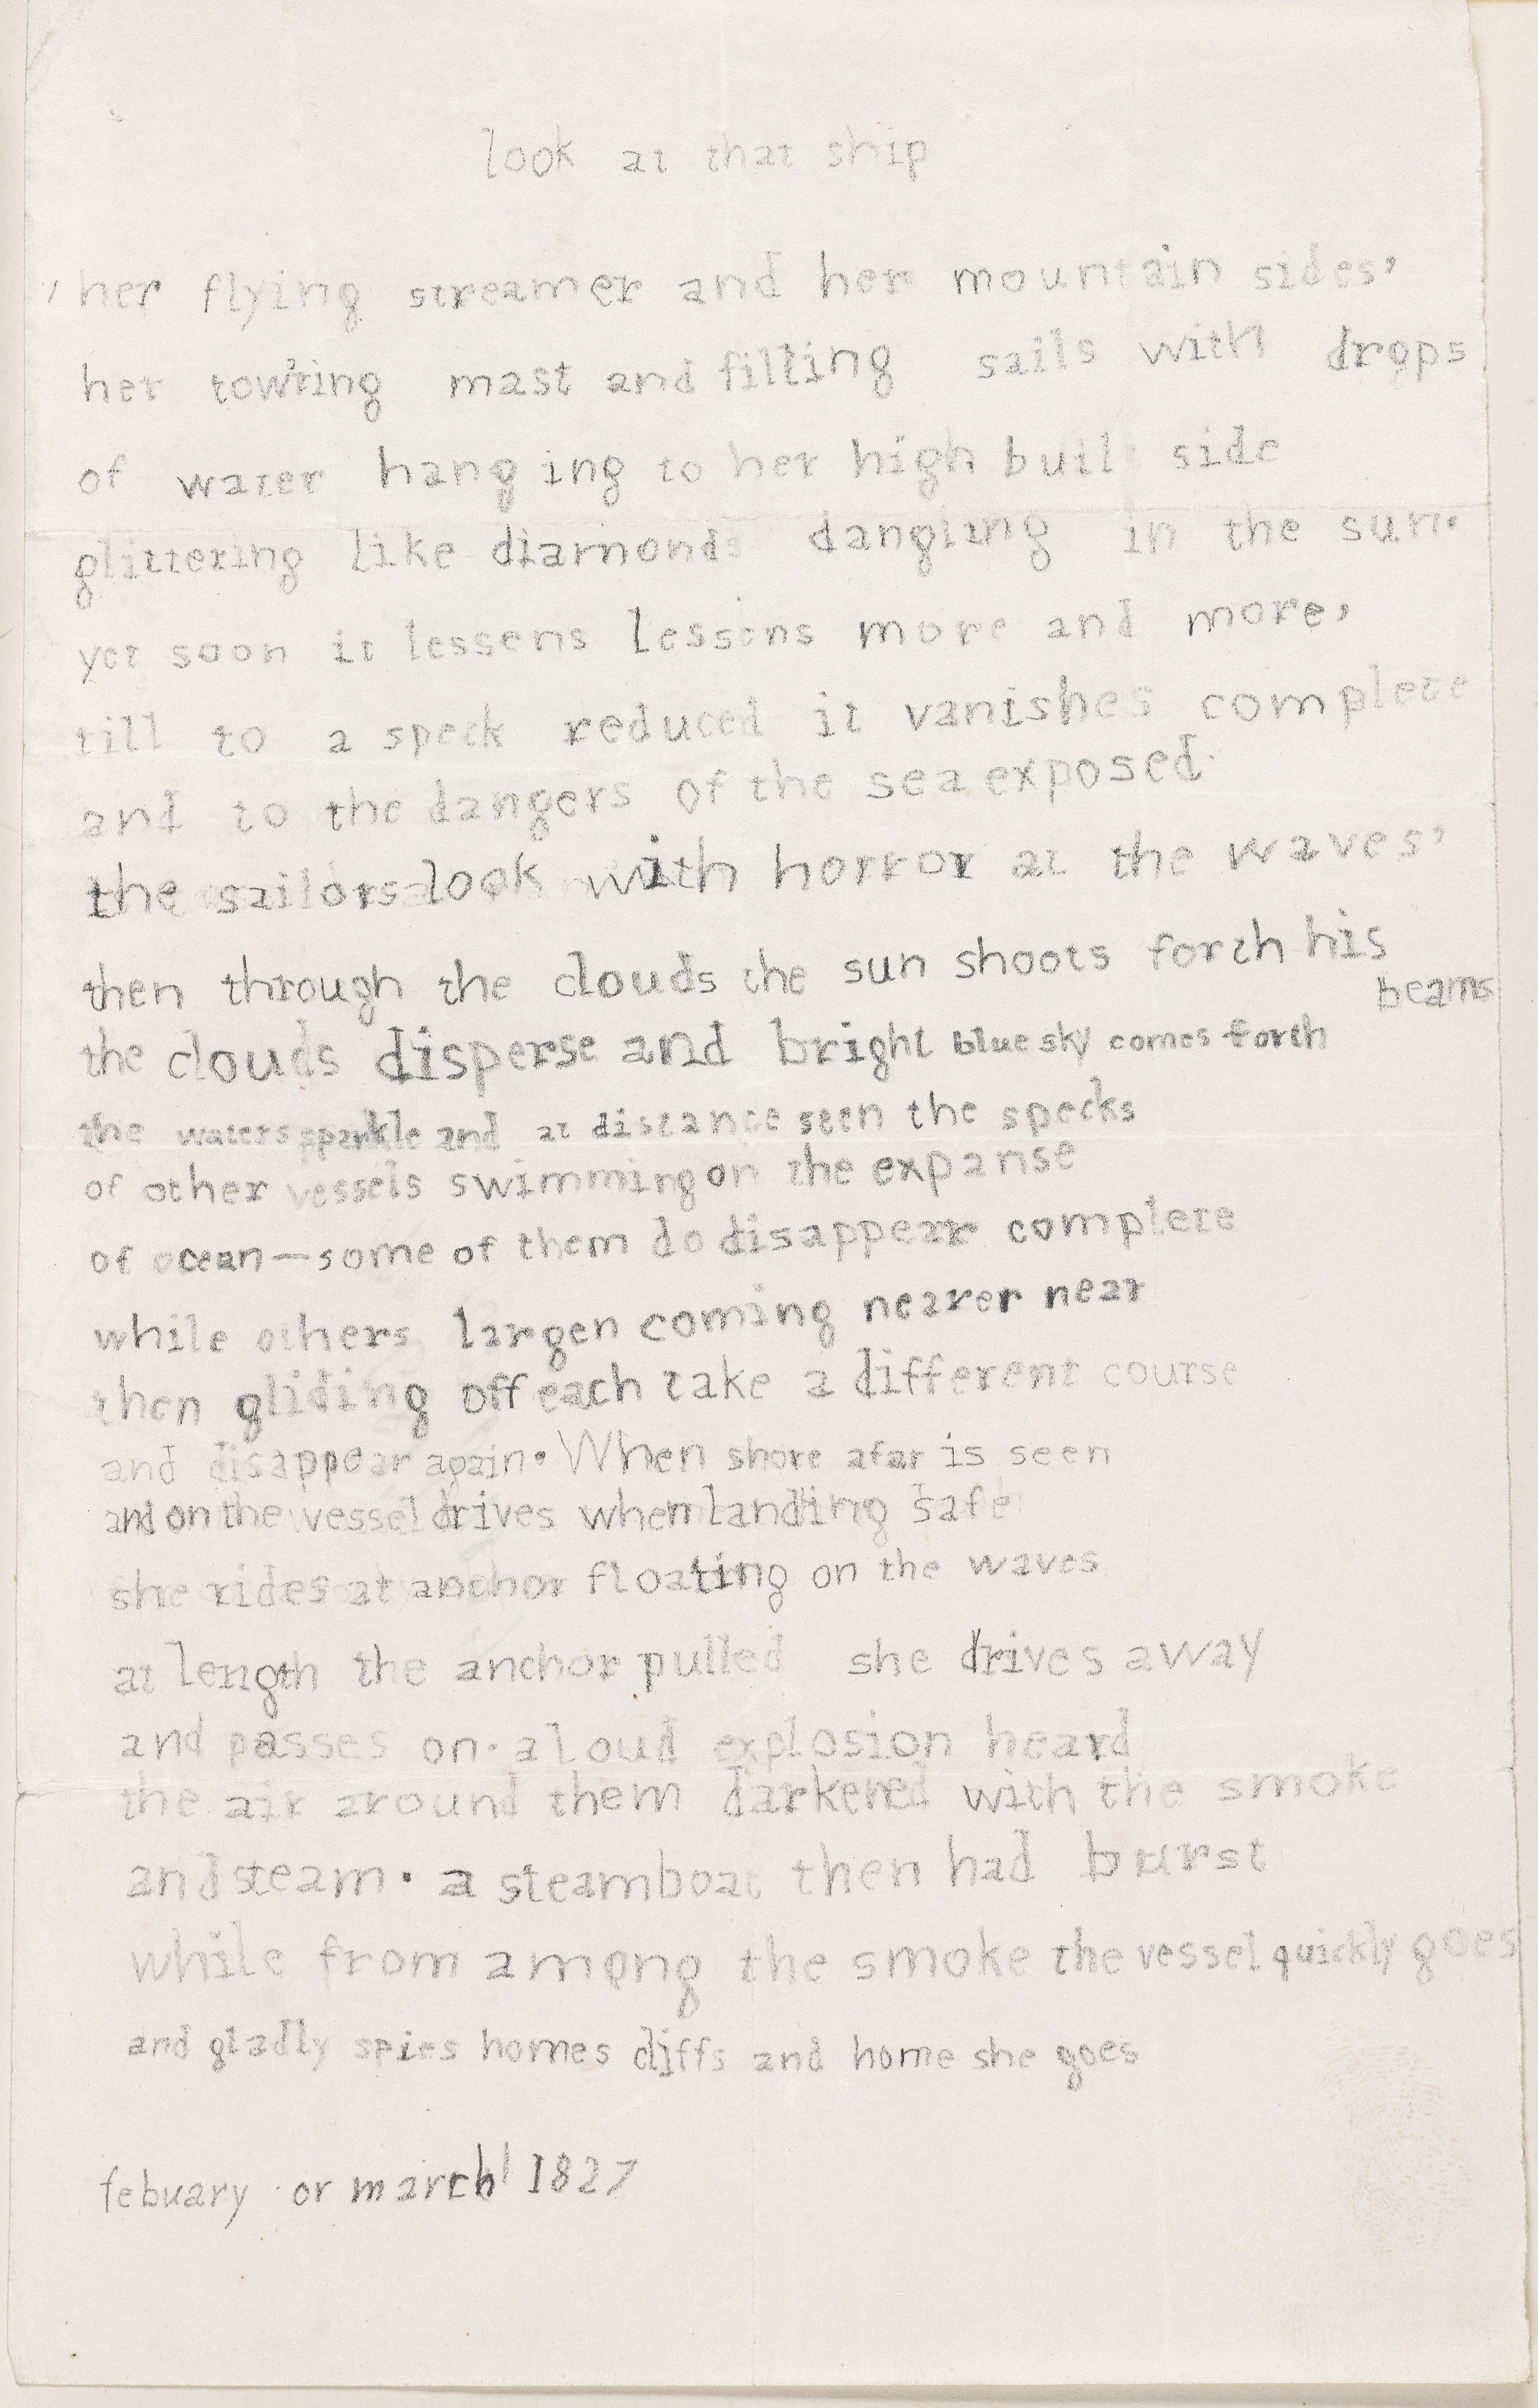 look at that ship
'her flying streamer and her mountain sides,
her tow'ring mast and filling sails with drops
of water hanging to her high built side
glittering like diamonds dangling in the sun.
yet soon it lessens lessens more and more,
till to a speck reduced it vanishes complete
and to the dangers of the sea exposed.
the sailors look with horror at the waves,
then through the clouds the sun shoots forth his
beams
the clouds disperse and bright blue sky comes forth
the waters sparkle and at distance seen the specks
of other vessels swimming on the expanse
of ocean—some of them do disappear complete
while others largen coming nearer near
then gliding off each take a different course
and disappear again. When shore afar is seen
and on the vessel drives when landing safe
she rides at anchor floating on the waves
at length the anchor pulled she drives away
and passes on. a loud explosion heard
the air around them darkened with the smoke
and steam. a steamboat then had burst
while from among the smoke the vessel quickly goes
and gladly spies homes cliffs and home she goes
febuary or march 1827